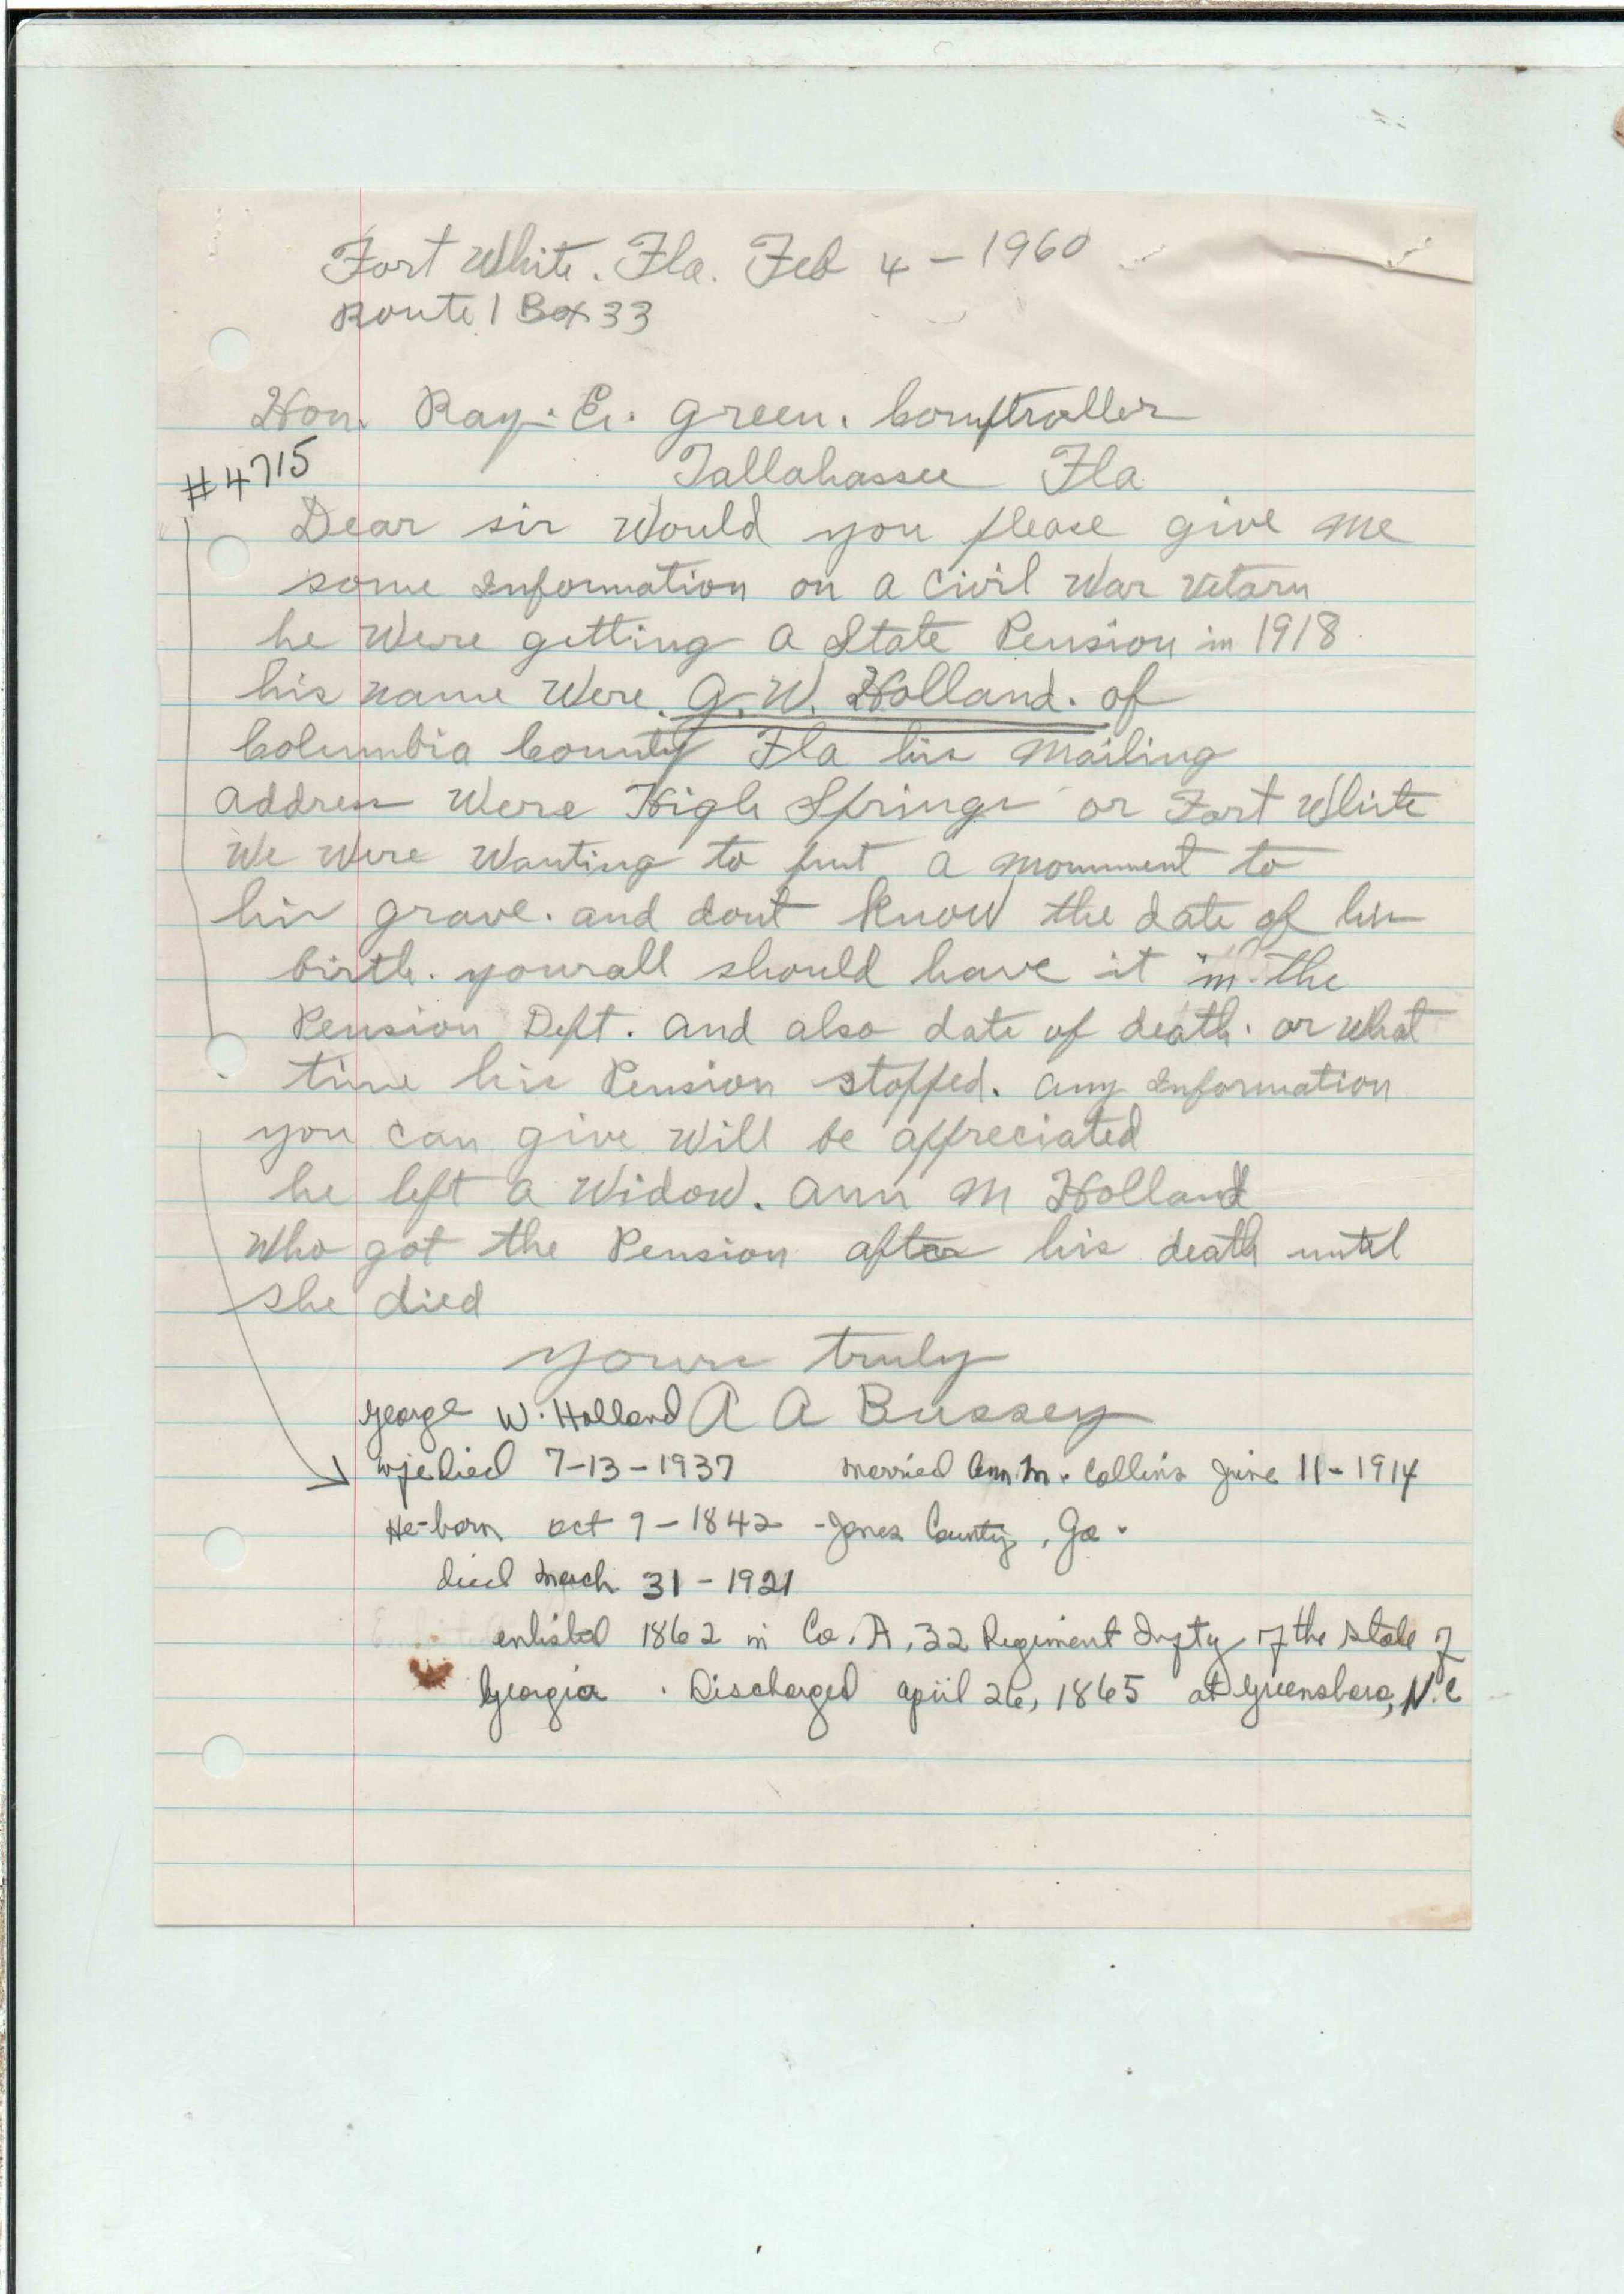 Fort White. Fla. Feb 4 - 1960
Route 1 Box 33
Hon. Ray. E. Green. Comptroller
#4715
Tallahassee Fla
Dear sir Would you please give me
some Information on a Civil War Vetarn
he Were getting a State Pension in 1918
his name Were. G. W. Holland. of
Columbia County Fla his Mailing
address Were High Springs or Fort White
We Were Wanting to put a Monument to
his grave. and dont Know the date of his
birth. yourall should have it in the
Pension Dept. and also date of death. or What
time his Pension stopped. any Information
you can give Will be appreciated
he left a Widow. Ann M Holland
Who got the Pension after his death until
she died
Yours truly
George W. Holland A A Bussey
wife died 7-13-1937 married Ann M. Collins June 11-1914
He-born Oct 9-1842 - Jones County, Ga.
died March 31-1921
enlisted 1862 in Co. A, 32 Regiment Infty of the State of
Georgia. Discharged April 26, 1865 at Greensboro, N.C